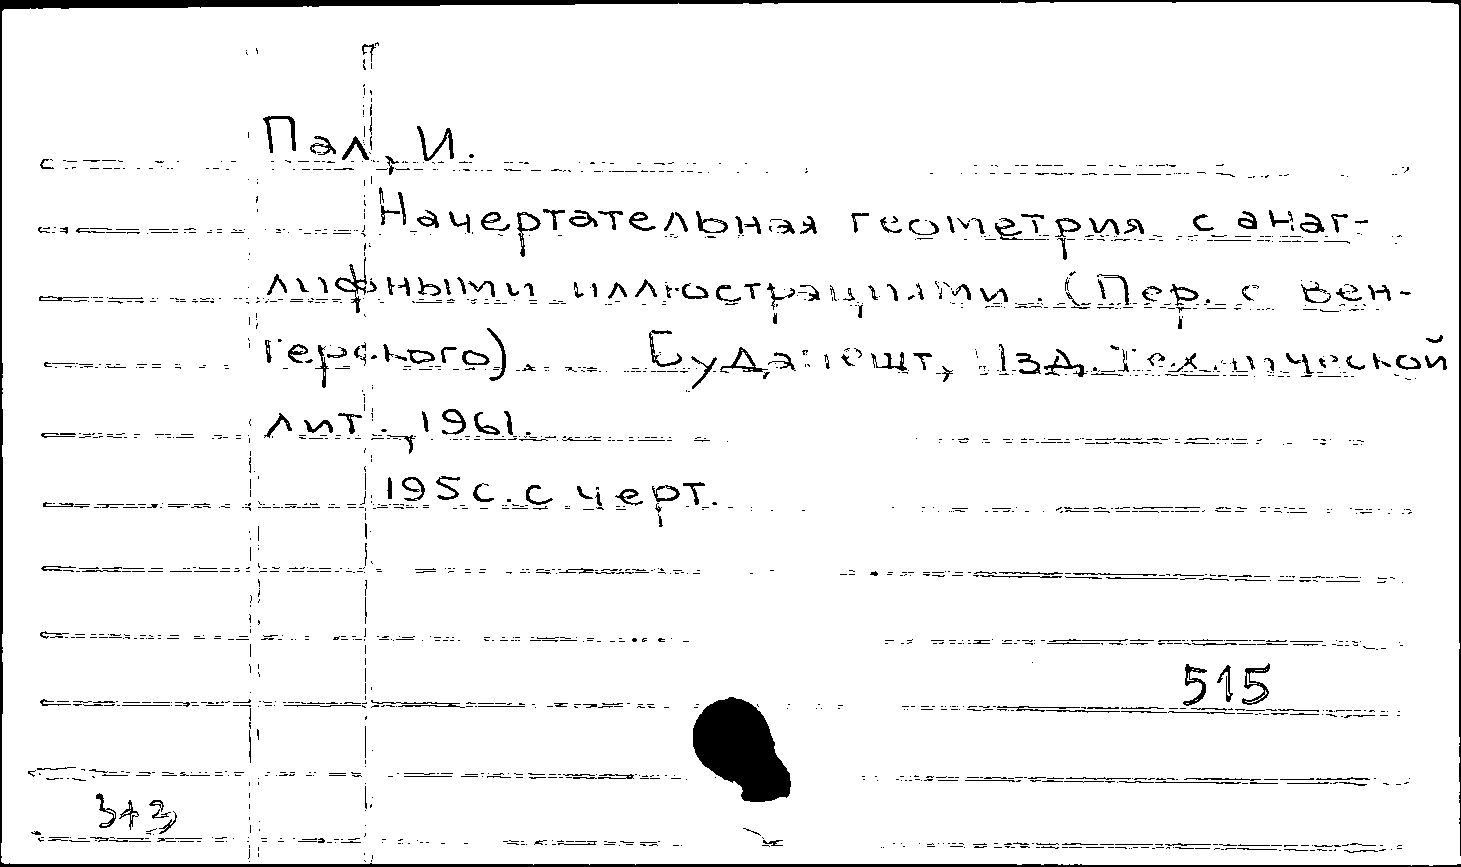 Пал, И.
Начертательная геометрия с анаг-
лифными иллюстрациями. (Пер. с вен-
герского). Будапешт, Изд. Технической
лит., 1961.
195 с. с черт.
515